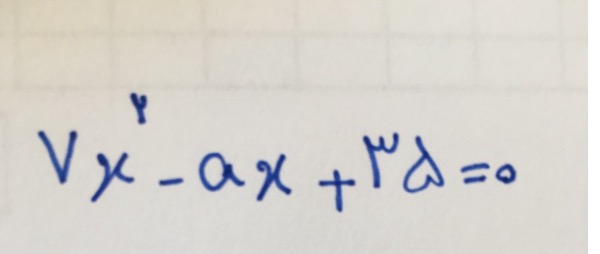 ۷x^۲ - ax + ۳۵ = ۰